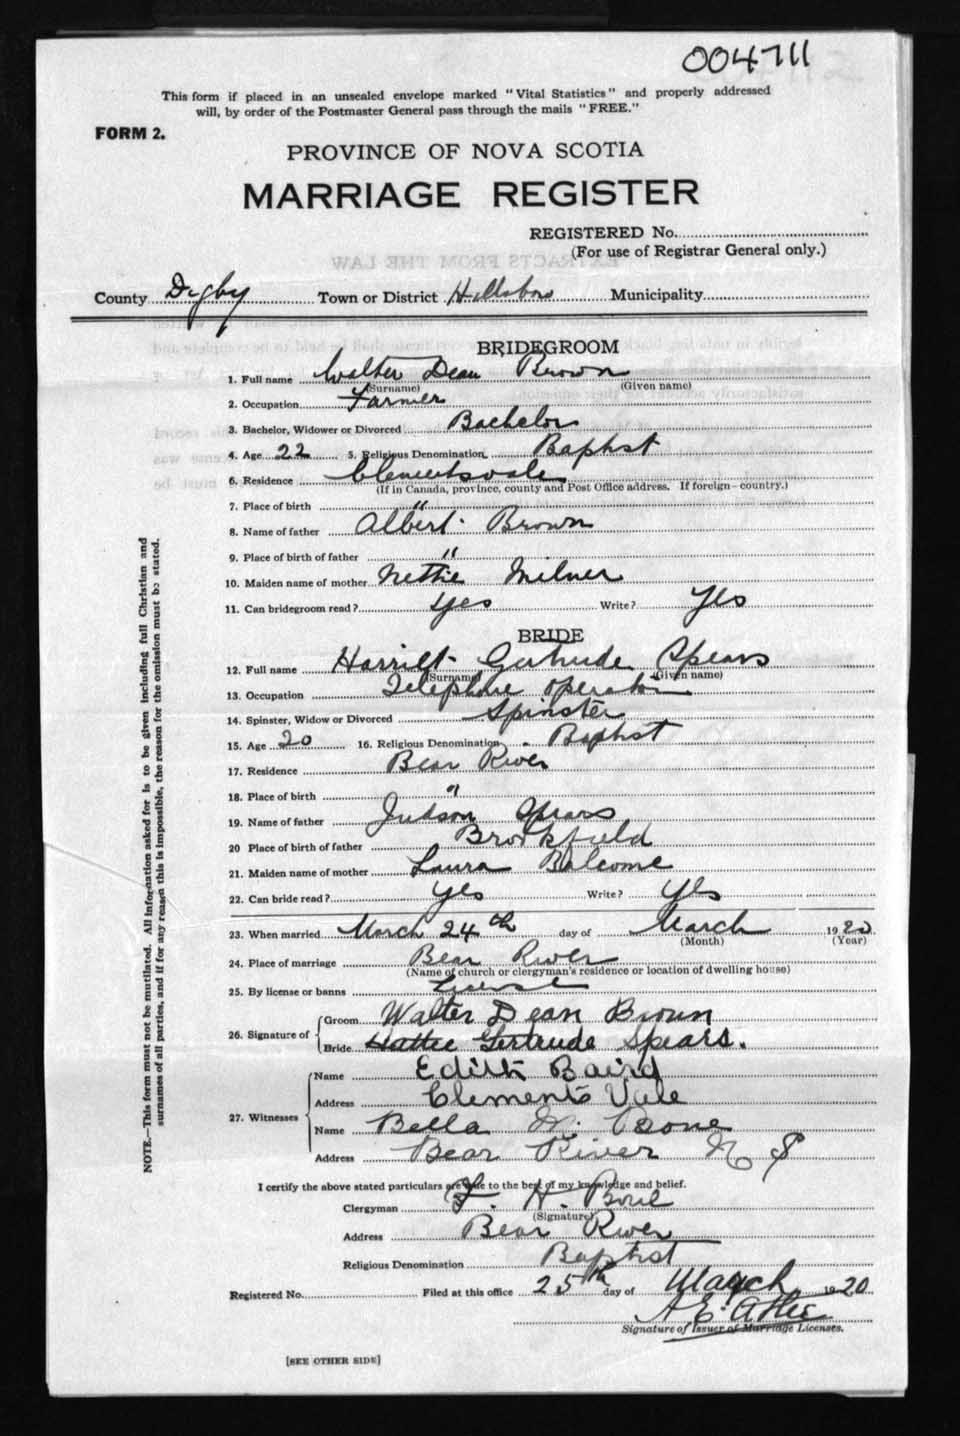 004711
This form if placed in an unsealed envelope marked "Vital Statistics" and properly addressed
will, by order of the Postmaster General pass through the mails "FREE."
FORM 2.
PROVINCE OF NOVA SCOTIA
MARRIAGE REGISTER
REGISTERED No.
(For use of Registrar General only.)
County Digby Town or District Hillsboro Municipality
BRIDEGROOM
1. Full name Walter Dean Brown
(Surname) (Given name)
2. Occupation Farmer
3. Bachelor, Widower or Divorced Bachelor
4. Age 22 5. Religious Denomination Baptist
6. Residence Clementsvale
(If in Canada, province, county and Post Office address. If foreign—country.)
7. Place of birth "
8. Name of father Albert Brown
9. Place of birth of father "
10. Maiden name of mother Nettie Milner
11. Can bridegroom read? Yes Write? Yes
BRIDE
12. Full name Harriet Gertrude Spears
(Surname) (Given name)
13. Occupation Telephone operator
14. Spinster, Widow or Divorced Spinster
15. Age 20 16. Religious Denomination Baptist
17. Residence Bear River
18. Place of birth "
19. Name of father Judson Spears
20 Place of birth of father Brookfield
21. Maiden name of mother Laura Balcome
22. Can bride read? Yes Write? Yes
23. When married March 24th day of March 1920
(Month) (Year)
24. Place of marriage Bear River
(Name of church or clergyman's residence or location of dwelling house)
25. By license or banns License
26. Signature of Groom Walter Dean Brown
Bride Hattie Gertrude Spears.
27. Witnesses
Name Edith Baird
Address Clements Vale
Name Bella Bone
Address Bear River N S
I certify the above stated particulars are true to the best of my knowledge and belief.
Clergyman H. Bone
(Signature)
Address Bear River
Religious Denomination Baptist
Registered No. Filed at this office 25th day of March 1920
A. E.
Signature of Issuer of Marriage Licenses.
[SEE OTHER SIDE]
NOTE.—This form must not be mutilated. All information asked for is to be given including full Christian and
surnames of all parties, and if for any reason this is impossible, the reason for the omission must be stated.